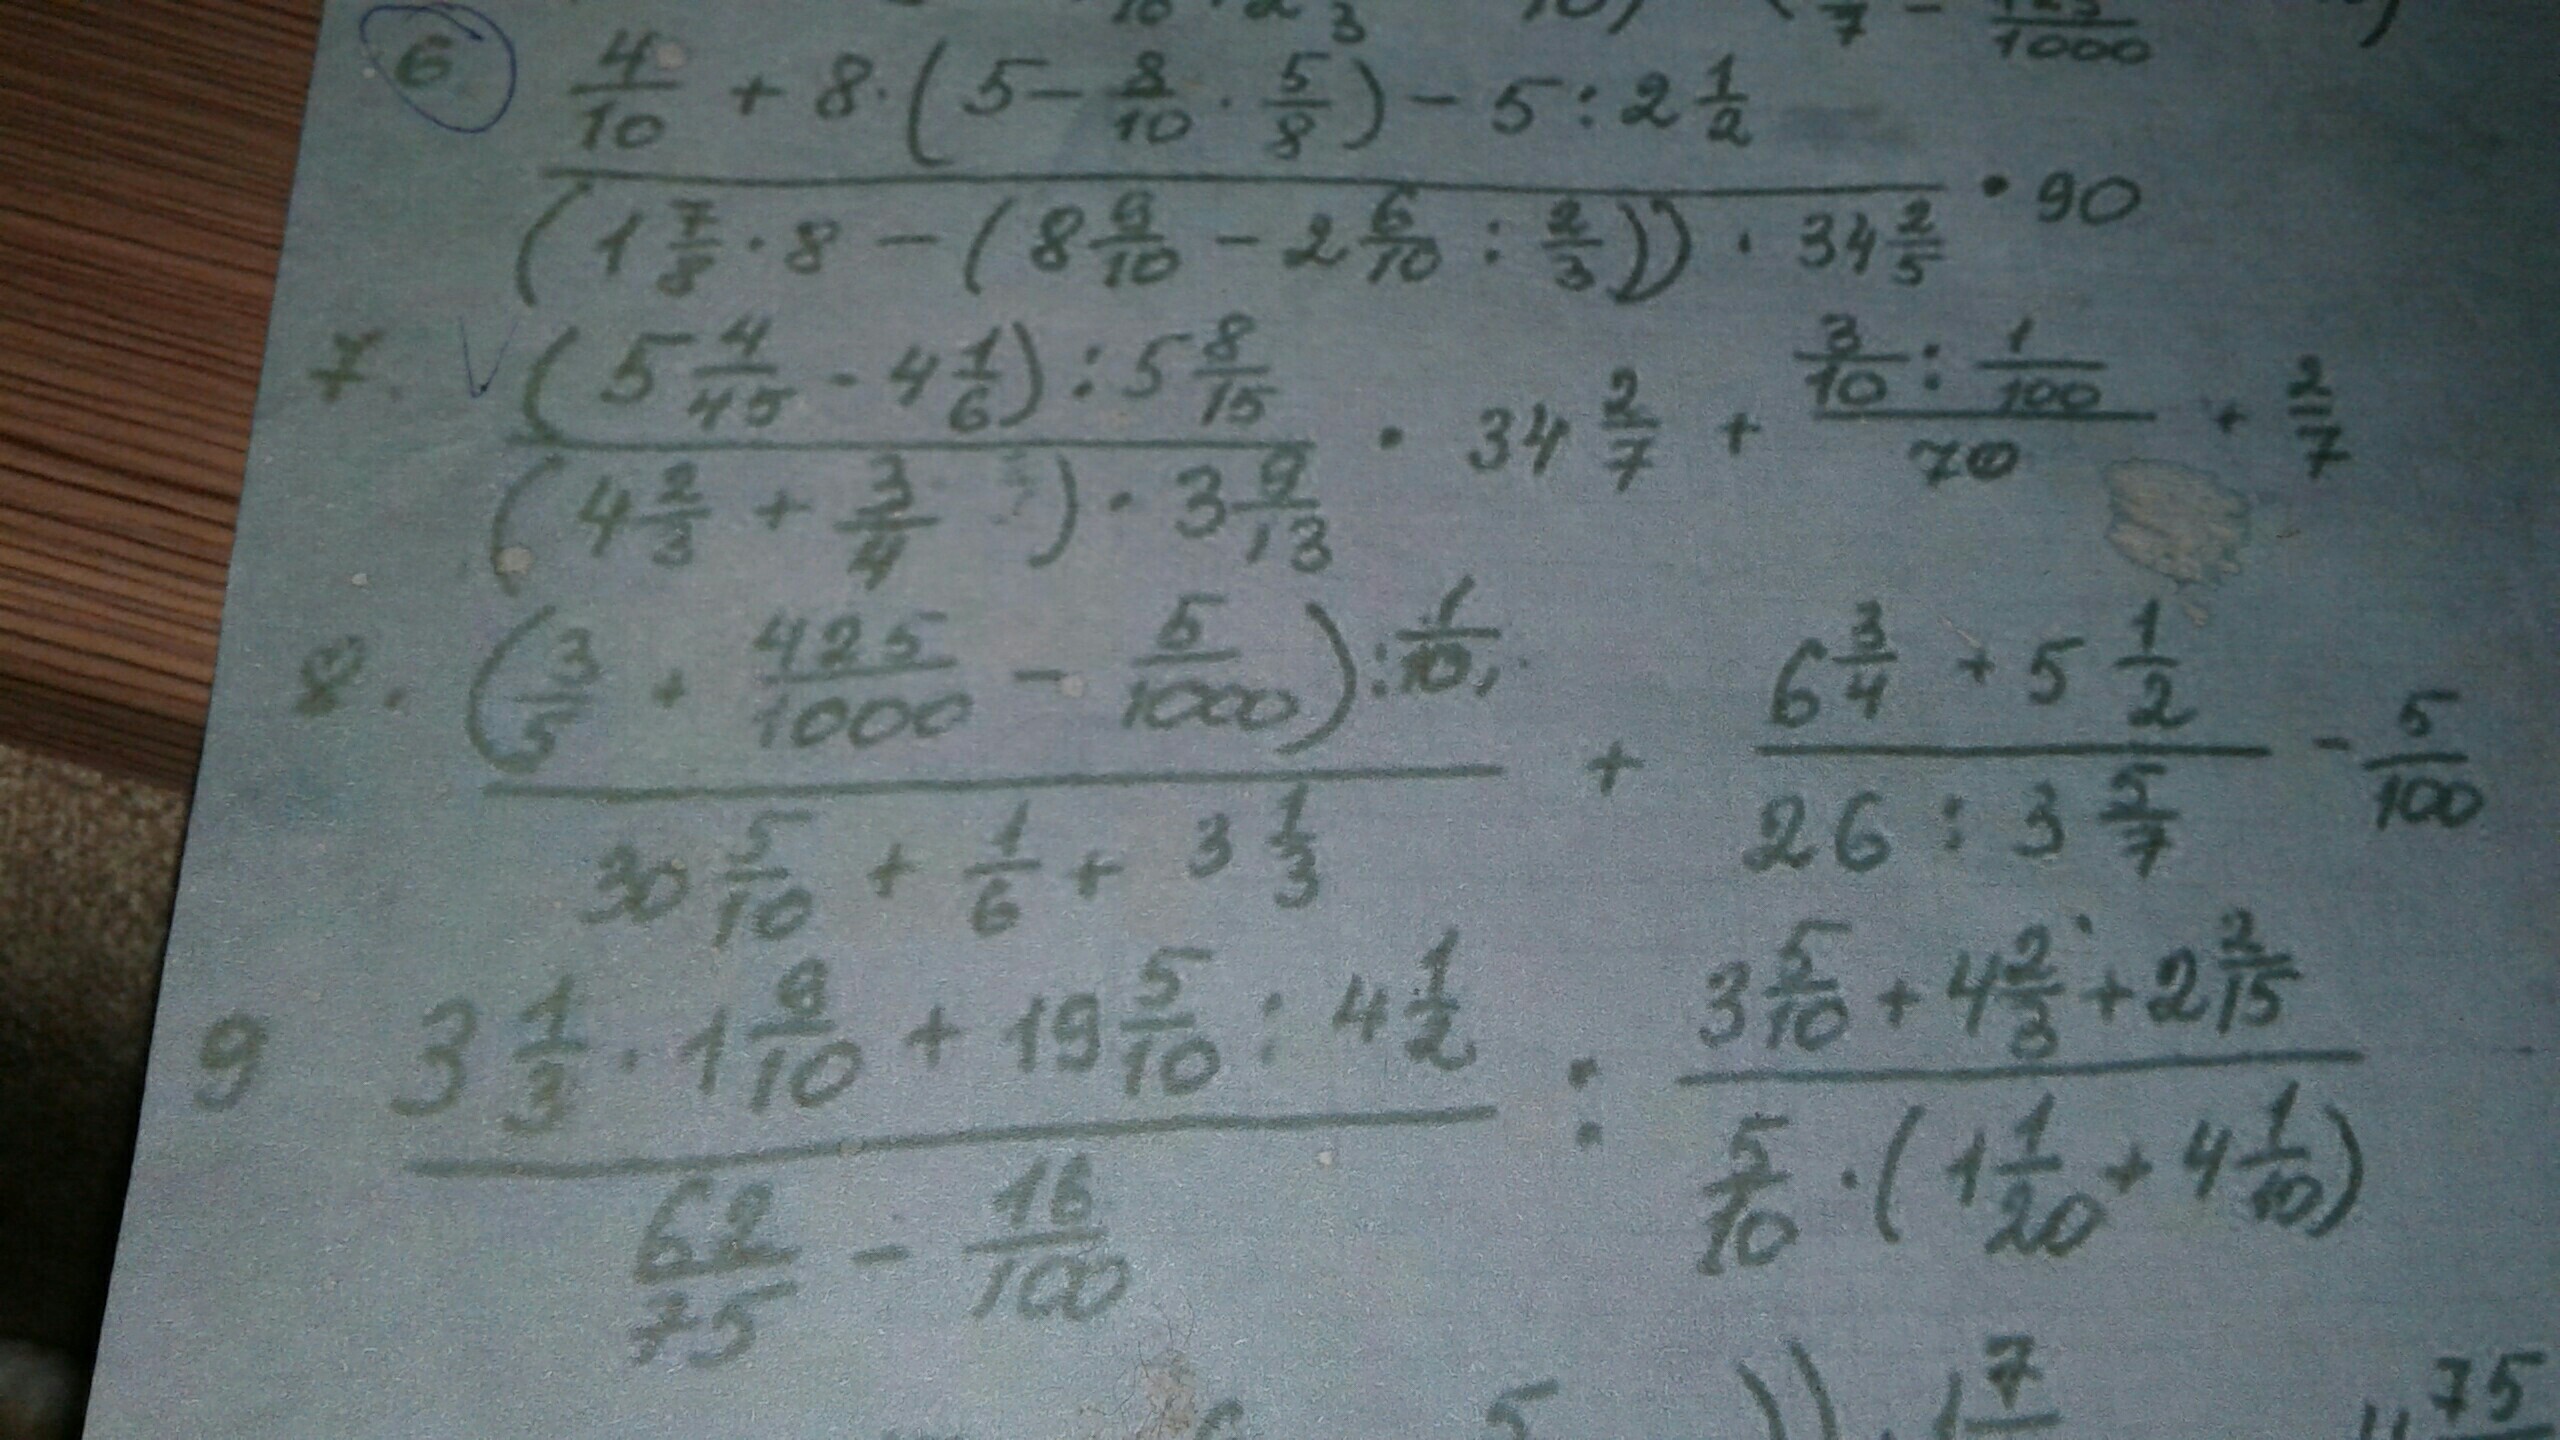 10 2 3 10) 7 - 125/1000
6. (4/10 + 8·(5 - 8/10 · 5/8) - 5 : 2 1/2) / ((1 7/8 · 8 - (8 9/10 - 2 6/10 : 2/3)) · 34 2/5) · 90
7. V ((5 4/45 - 4 1/6) : 5 8/15) / ((4 2/3 + 3/4) · 3 9/13) · 34 2/7 + (3/10 : 1/100) / 70 + 2/7
8. ((3/5 + 425/1000 - 5/1000) : 1/10) / (30 5/10 + 1/6 + 3 1/3) + (6 3/4 + 5 1/2) / (26 : 3 5/7) - 5/100
9 (3 1/3 · 1 9/10 + 19 5/10 : 4 1/2) / (62/75 - 16/100) : (3 5/10 + 4 2/3 + 2 2/15) / (5/10 · (1 1/20 + 4 1/10))
5 )) · 1 7 75